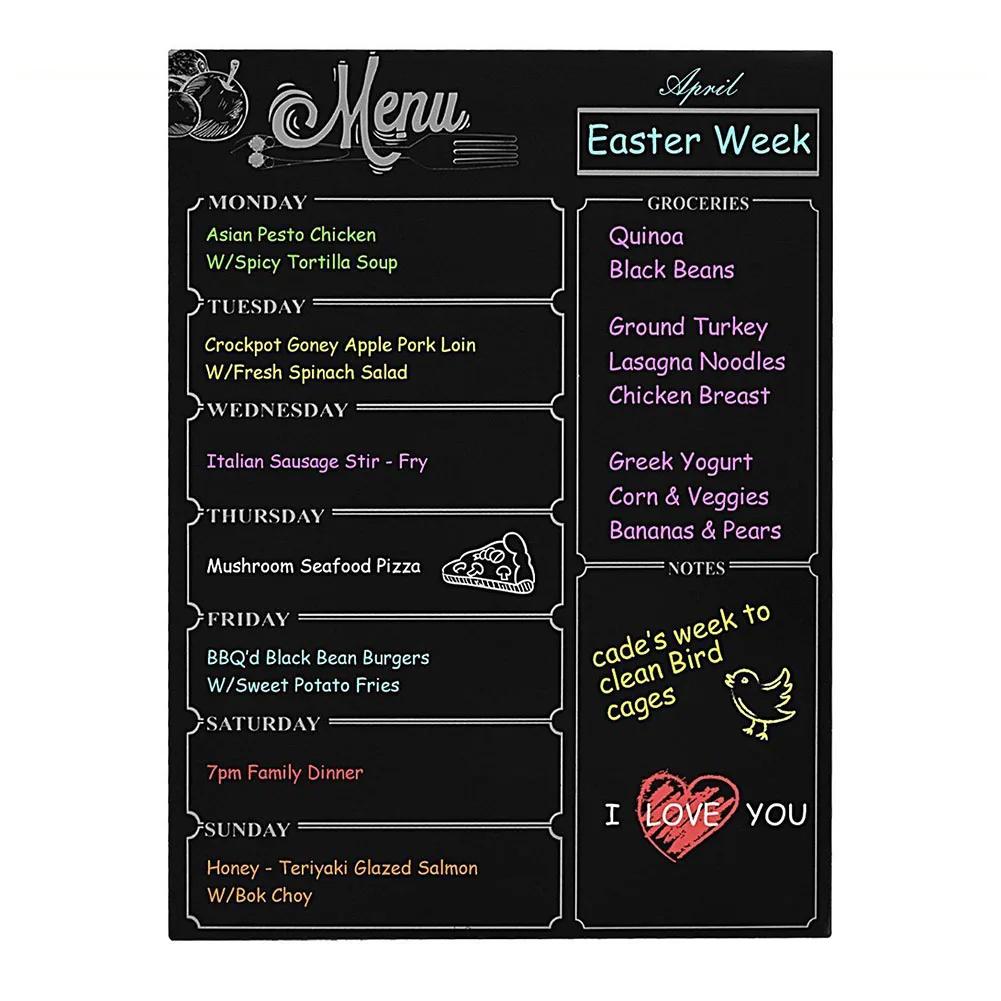 Menu
April
Easter Week
MONDAY
Asian Pesto Chicken
W/Spicy Tortilla Soup
TUESDAY
Crockpot Goney Apple Pork Loin
W/Fresh Spinach Salad
WEDNESDAY
Italian Sausage Stir - Fry
THURSDAY
Mushroom Seafood Pizza
FRIDAY
BBQ'd Black Bean Burgers
W/Sweet Potato Fries
SATURDAY
7pm Family Dinner
SUNDAY
Honey - Teriyaki Glazed Salmon
W/Bok Choy
GROCERIES
Quinoa
Black Beans
Ground Turkey
Lasagna Noodles
Chicken Breast
Greek Yogurt
Corn & Veggies
Bananas & Pears
NOTES
cade's week to
clean Bird
cages
I LOVE YOU